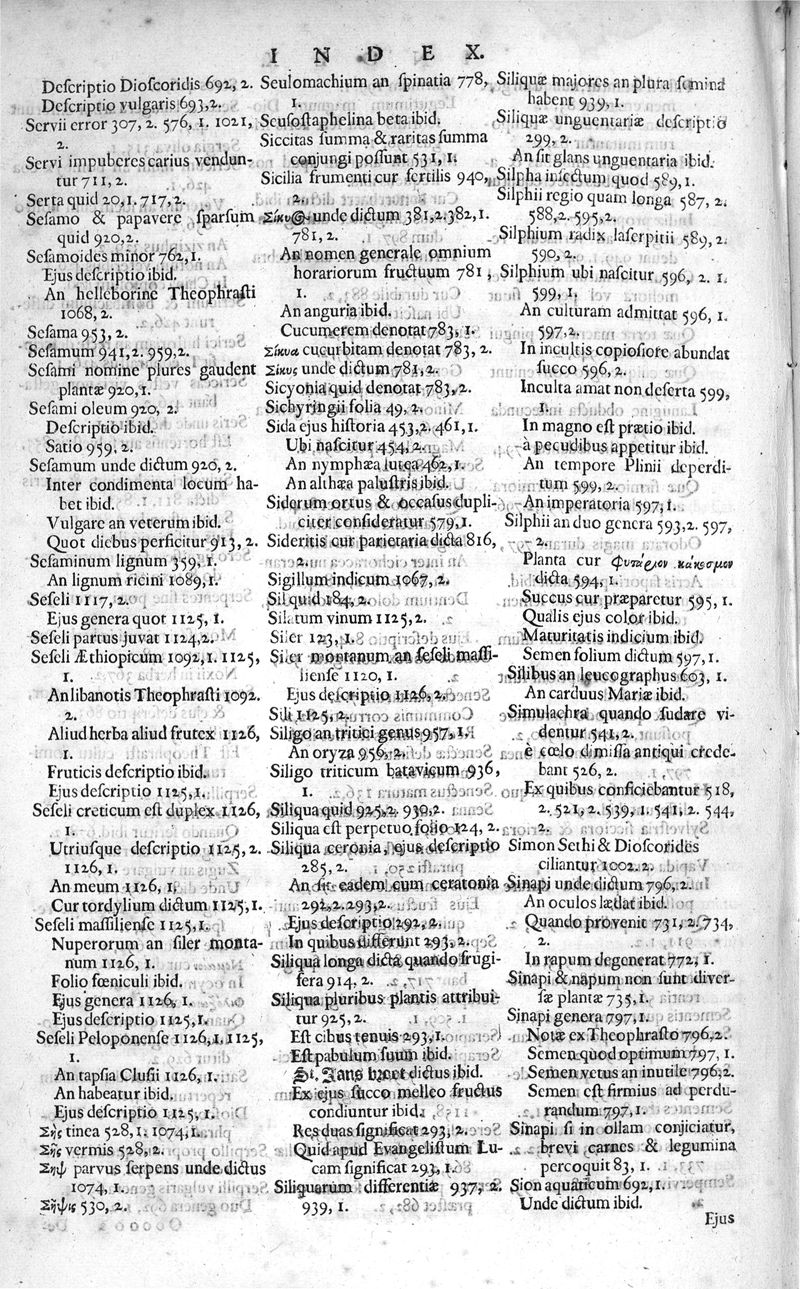 INDEX.
Descriptio Dioscoridis 692, 2.
Descriptio vulgaris 693,2.
Servii error 307, 2. 576, 1. 1021,
2.
Servi impuberes carius vendun-
tur 711, 2.
Serta quid 20,1. 717,2.
Sesamo & papavere sparsum
quid 920,2.
Sesamoides minor 762,1.
Ejus descriptio ibid.
An helleborine Theophrasti
1068, 2.
Sesama 953, 2.
Sesamum 941,2. 959,2.
Sesami nomine plures gaudent
plantæ 920,1.
Sesami oleum 920, 2.
Descriptio ibid.
Satio 959, 2.
Sesamum unde dictum 920, 2.
Inter condimenta locum ha-
bet ibid.
Vulgare an veterum ibid.
Quot diebus perficitur 913, 2.
Sesaminum lignum 359, 1.
An lignum ricini 1089,1.
Seseli 1117, 2.
Ejus genera quot 1125, 1.
Seseli partus juvat 1124,2.
Seseli Æthiopicum 1092,1. 1125,
1.
An libanotis Theophrasti 1092.
2.
Aliud herba aliud frutex 1126,
1.
Fruticis descriptio ibid.
Ejus descriptio 1125,1.
Seseli creticum est duplex 1126,
1.
Utriusque descriptio 1125, 2.
1126, 1.
An meum 1126, 1.
Cur tordylium dictum 1125,1.
Seseli massiliense 1125,1.
Nuperorum an siler monta-
num 1126, 1.
Folio fœniculi ibid.
Ejus genera 1126, 1.
Ejus descriptio 1125,1.
Seseli Peloponense 1126,1.1125,
1.
An tapsia Clusii 1126, 1.
An habeatur ibid.
Ejus descriptio 1125, 1.
Σὴς tinea 528,1. 1074,1.
Σὴς vermis 528, 2.
Σὴψ parvus serpens unde dictus
1074, 1.
Σῆψις 530, 2.
Seulomachium an spinatia 778,
1.
Seusostaphelina beta ibid.
Siccitas summa & raritas summa
conjungi possunt 531, 1.
Sicilia frumenti cur fertilis 940,
2.
Σίκυος unde dictum 381,2.382,1.
781, 2.
An nomen generale omnium
horariorum fructuum 781,
1.
An anguria ibid.
Cucumerem denotat 783, 1.
Σίκυα cucurbitam denotat 783, 2.
Σίκυς unde dictum 781, 2.
Sicyonia quid denotat 783, 2.
Sichyringii folia 49, 2.
Sida ejus historia 453,2. 461,1.
Ubi nascitur 454, 2.
An nymphæa lutea 462, 1.
An althæa palustris ibid.
Siderum ortus & occasus dupli-
citer consideratur 579,1.
Sideritis cur parietaria dicta 816,
2.
Sigillum indicum 1067, 2.
Sil quid 184, 2.
Silatum vinum 1125, 2.
Siler 123, 1.
Siler montanum an seseli massi-
liense 1120, 1.
Ejus descriptio 1126, 2.
Sili 1125, 2.
Siligo an tritici genus 957, 1.
An oryza 956, 2.
Siligo triticum batavicum 936,
1.
Siliqua quid 925,2. 930,2.
Siliqua est perpetuo folio 124, 2.
Siliqua ceronia, ejus descriptio
285, 2.
An sit eadem cum ceratonia
292,2.293,2.
Ejus descriptio 292, 2.
In quibus differunt 293, 2.
Siliqua longa dicta quando frugi-
fera 914, 2.
Siliqua pluribus plantis attribui-
tur 925, 2.
Est cibus tenuis 293, 1.
Est pabulum suum ibid.
St. Jans broot dictus ibid.
Ex ejus succo melleo fructus
condiuntur ibid.
Res duas significat 293, 2.
Quid apud Evangelistum Lu-
cam significat 293, 1.
Siliquarum differentiæ 937, 2.
939, 1.
Siliquæ majores an plura semina
habent 939, 1.
Siliquæ unguentariæ descriptio
299, 2.
An sit glans unguentaria ibid.
Silpha insectum quod 589, 1.
Silphii regio quam longa 587, 2.
588,2. 595,2.
Silphium radix laserpitii 589, 2.
590, 2.
Silphium ubi nascitur 596, 2. 1.
599, 1.
An culturam admittat 596, 1.
597,2.
In incultis copiosiore abundat
succo 596, 2.
Inculta amat non deserta 599,
1.
In magno est prætio ibid.
à pecudibus appetitur ibid.
An tempore Plinii deperdi-
tum 599, 2.
An imperatoria 597, 1.
Silphii an duo genera 593,2. 597,
2.
Planta cur
dicta 594, 1.
Succus cur præparetur 595, 1.
Qualis ejus color ibid.
Maturitatis indicium ibid.
Semen folium dictum 597, 1.
Silibus an leucographus 603, 1.
An carduus Mariæ ibid.
Simulachra quando sudare vi-
dentur 541, 2.
è cœlo dimissa antiqui crede-
bant 526, 2.
Ex quibus conficiebantur 518,
2. 521, 2. 539, 1. 541, 2. 544,
2.
Simon Sethi & Dioscorides
ciliantur 1002. 2.
Sinapi unde dictum 796, 2.
An oculos lædat ibid.
Quando provenit 731, 2. 734,
2.
In rapum degenerat 772, 1.
Sinapi & napum non sunt diver-
sæ plantæ 735, 1.
Sinapi genera 797, 1.
Notæ ex Theophrasto 796, 2.
Semen quod optimum 797, 1.
Semen vetus an inutile 796,2.
Semen est firmius ad perdu-
randum 797, 1.
Sinapi si in ollam conjiciatur,
brevi carnes & legumina
percoquit 83, 1.
Sion aquaticum 692, 1.
Unde dictum ibid.
Ejus